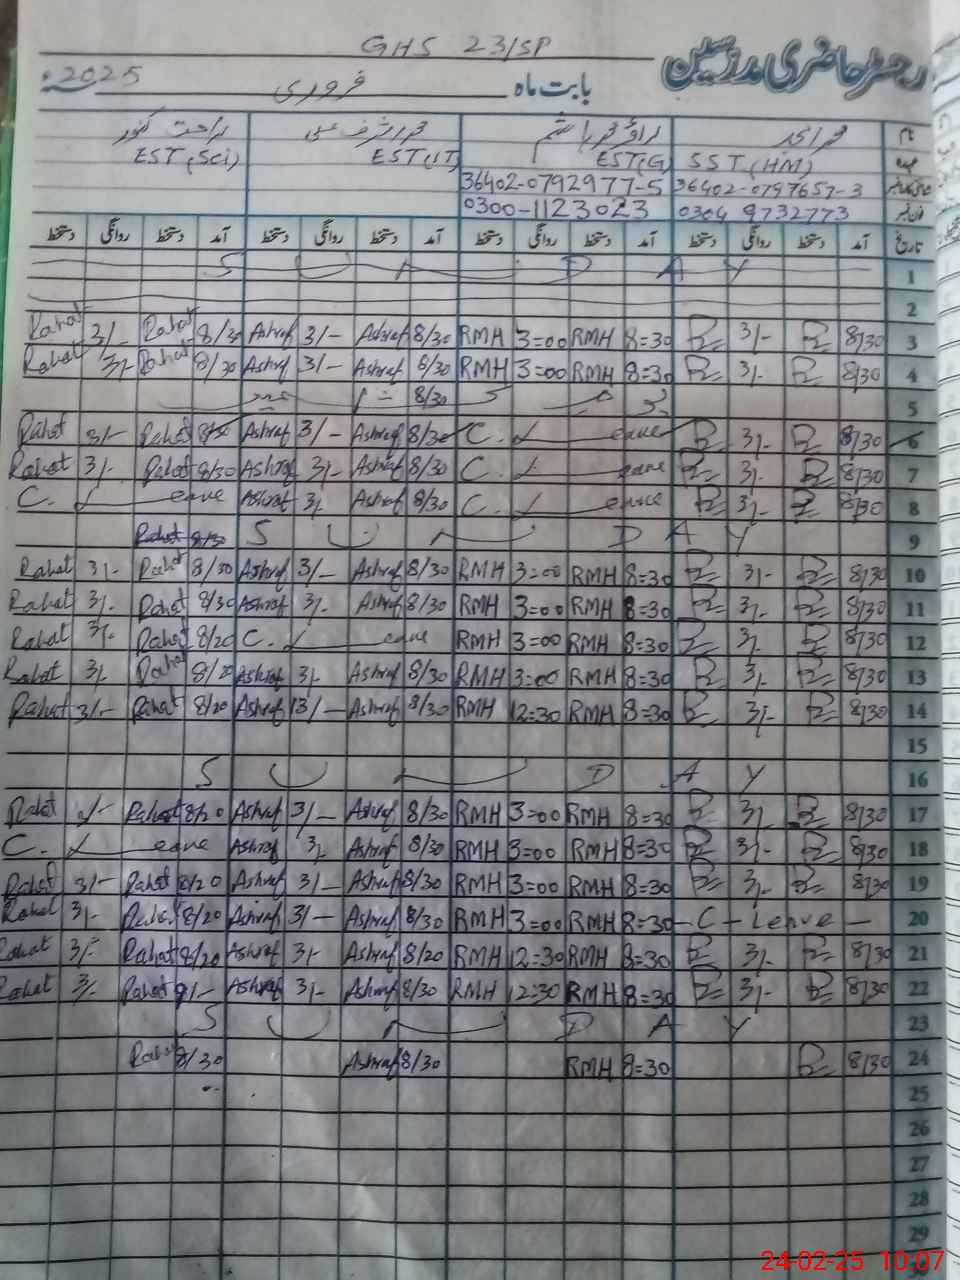 GHS 23/SP
رجسٹر حاضری مدرسین
بابت ماہ فروری 2025ء
نام محمد راؤ محمد ہاشم محمد اشرف راحت
عہدہ SST (HM) EST(G) EST(IT) EST(Sci)
36402-0797657-3 36402-0792977-5
0304 9732773 0300-1123023
تاریخ آمد دستخط روانگی دستخط آمد دستخط روانگی دستخط آمد دستخط روانگی دستخط آمد دستخط روانگی دستخط
SUNDAY 1
2
Rahat 3/- Rahat 8/30 Ashraf 3/- Ashraf 8/30 RMH 3=00 RMH 8=30 3/- 8/30 3
Rahat 3/- Rahat 8/30 Ashraf 3/- Ashraf 8/30 RMH 3=00 RMH 8=30 3/- 8/30 4
8/30 5
Rahat 3/- Rahat 8/30 Ashraf 3/- Ashraf 8/30 C. Leave 3/- 8/30 6
Rahat 3/- Rahat 8/30 Ashraf 3/- Ashraf 8/30 C. Leave 3/- 8/30 7
C. Leave Ashraf 3/- Ashraf 8/30 C. Leave 3/- 8/30 8
Rahat 8/30 SUNDAY 9
Rahat 3/- Rahat 8/30 Ashraf 3/- Ashraf 8/30 RMH 3=00 RMH 8=30 3/- 8/30 10
Rahat 3/- Rahat 8/30 Ashraf 3/- Ashraf 8/30 RMH 3=00 RMH 8=30 3/- 8/30 11
Rahat 3/- Rahat 8/20 C. Leave RMH 3=00 RMH 8=30 3/- 8/30 12
Rahat 3/- Rahat 8/20 Ashraf 3/- Ashraf 8/30 RMH 3=00 RMH 8=30 3/- 8/30 13
Rahat 3/- Rahat 8/20 Ashraf 3/- Ashraf 8/30 RMH 12=30 RMH 8=30 3/- 8/30 14
15
SUNDAY 16
Rahat Rahat 8/20 Ashraf 3/- Ashraf 8/30 RMH 3=00 RMH 8=30 3/- 8/30 17
C. Leave Ashraf 3/- Ashraf 8/30 RMH 3=00 RMH 8=30 3/- 8/30 18
Rahat 3/- Rahat 8/20 Ashraf 3/- Ashraf 8/30 RMH 3=00 RMH 8=30 3/- 8/30 19
Rahat 3/- Rahat 8/20 Ashraf 3/- Ashraf 8/30 RMH 3=00 RMH 8=30 -C- Leave - 20
Rahat 3/- Rahat 8/20 Ashraf 3/- Ashraf 8/20 RMH 12=30 RMH 8=30 3/- 8/30 21
Rahat 3/- Rahat 9/- Ashraf 3/- Ashraf 8/30 RMH 12=30 RMH 8=30 3/- 8/30 22
SUNDAY 23
Rahat 8/30 Ashraf 8/30 RMH 8=30 8/30 24
25
26
27
28
29
24-02-25 10:07